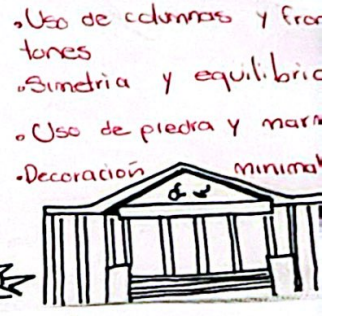 •Uso de columnas y fron
tones
•Simetria y equilibrio
•Uso de piedra y marm
•Decoración minimal